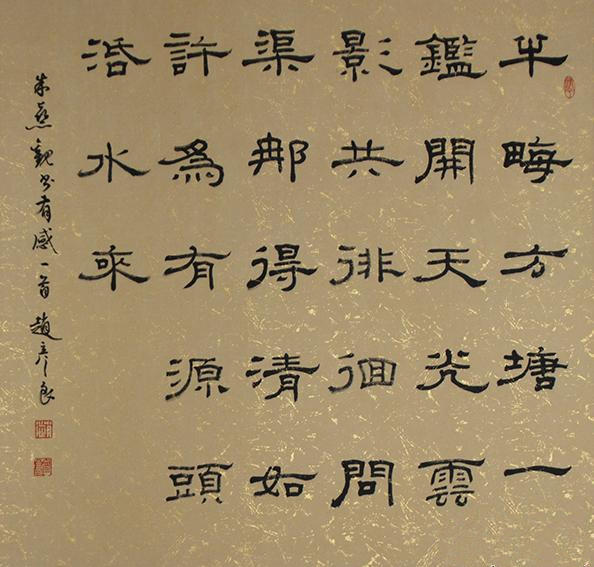 半畮方塘一
鑑開天光雲
影共徘徊問
渠那得清如
許爲有源頭
活水來
朱熹觀書有感一首 趙彥良